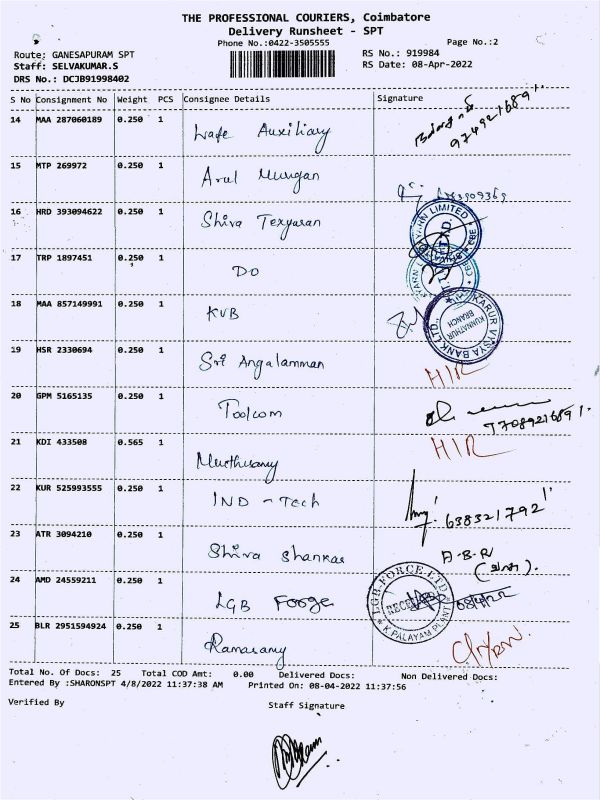 THE PROFESSIONAL COURIERS, Coimbatore
Delivery Runsheet - SPT
Phone No.:0422-3505555 Page No.:2
Route: GANESAPURAM SPT RS No.: 919984
Staff: SELVAKUMAR.S RS Date: 08-Apr-2022
DRS No.: DCJB91998402
S No Consignment No Weight PCS Consignee Details Signature
14 MAA 287060189 0.250 1 Wafe Auxiliary
15 MTP 269972 0.250 1 Arul Murugan
16 HRD 393094622 0.250 1 Shiva Texyaran
17 TRP 1897451 0.250 1 DO
18 MAA 857149991 0.250 1 KVB
KARUR VYSYA BANK LTD.,
KUNNATHUR
BRANCH
19 HSR 2330694 0.250 1 Sri Angalamman HIR
20 GPM 5165135 0.250 1 Toolcom
7708921689
21 KDI 433508 0.565 1 Muthusamy HIR
22 KUR 525993555 0.250 1 IND - Tech
6383217921
23 ATR 3094210 0.250 1 Shiva Shankar A-B-R
24 AMD 24559211 0.250 1 LGB Forge
L.G.B. FORGE LTD.
RECEIVED
K. PALAYAM PLANT
25 BLR 2951594924 0.250 1 Ramasamy
Total No. Of Docs: 25 Total COD Amt: 0.00 Delivered Docs: Non Delivered Docs:
Entered By :SHARONSPT 4/8/2022 11:37:38 AM Printed On: 08-04-2022 11:37:56
Verified By Staff Signature